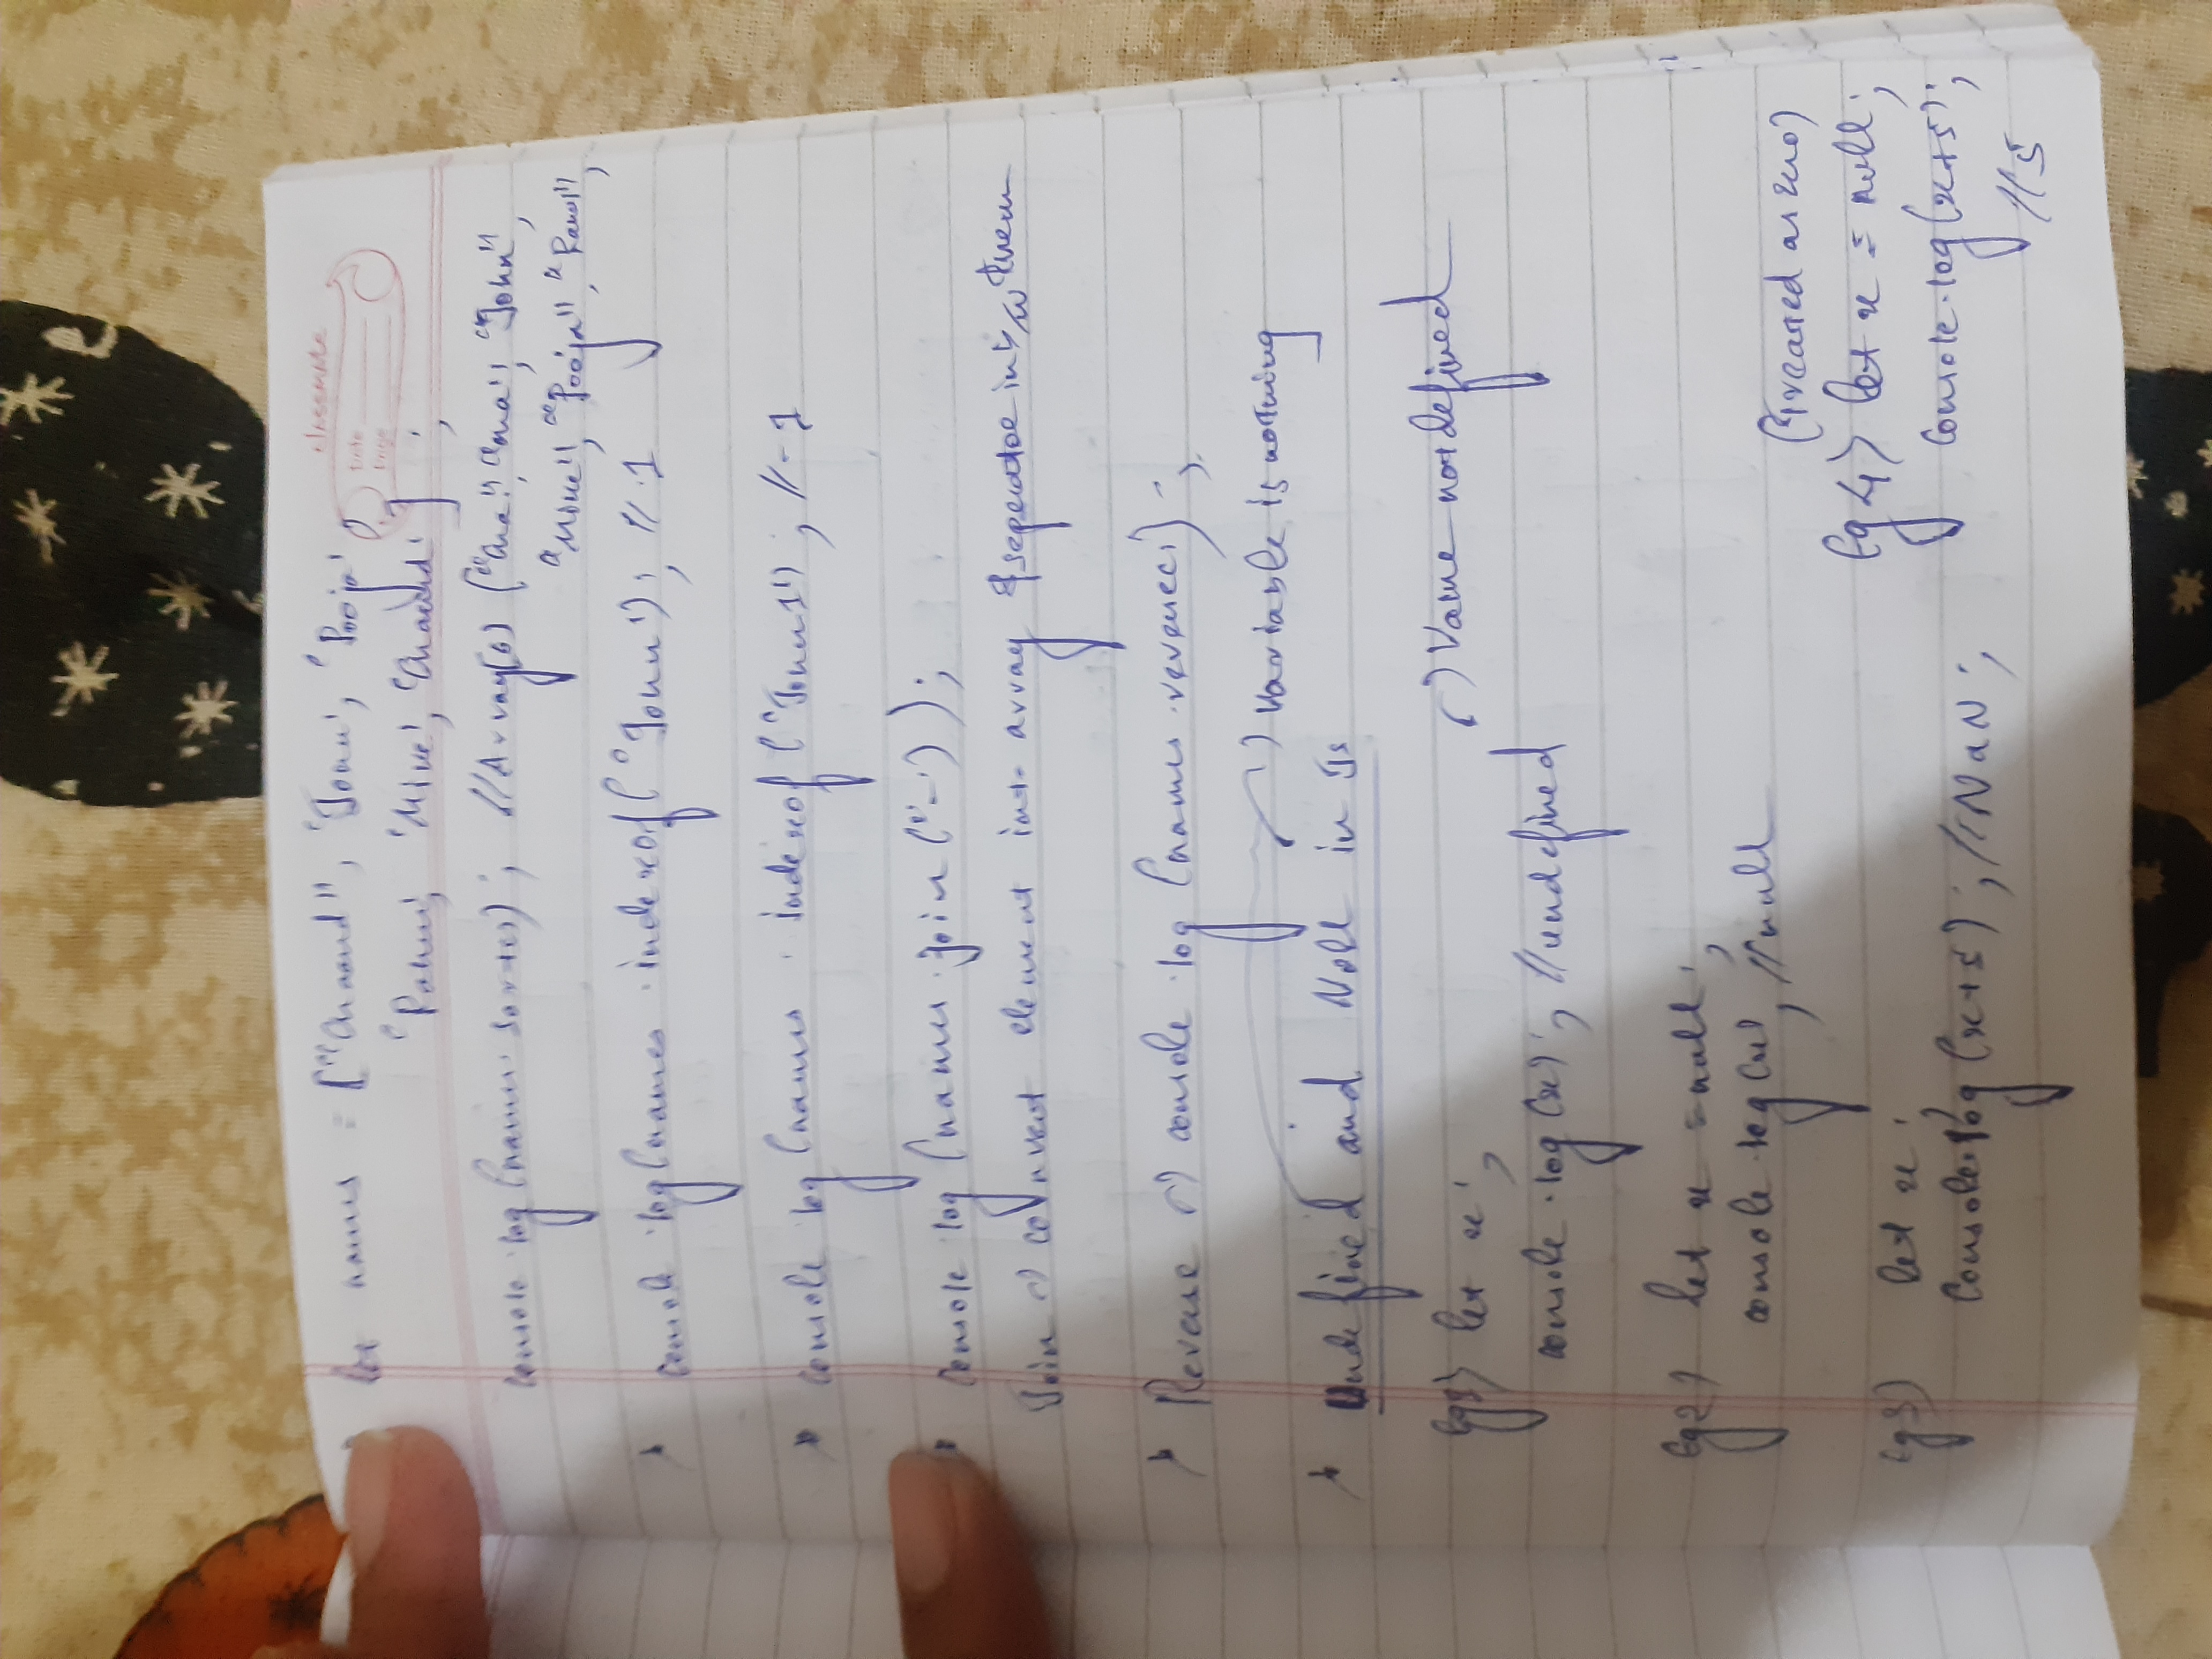 classmate
Date
Page
let names = ["Anand", 'John', 'Pooja',
'Rahul', 'Mike', 'Anand'] ;
console.log(names.sort()); //Array(6) ("Ana", "Ana", "John",
"Mike", "Pooja", "Rahul",
console.log(names.indexof("John'); // 1
console log (names . indexof ('John1') ; // -1
console log (names.join ('-'));
Join → convert element into array & seperator in b/w them
Reverse → console.log (names.reverse()) ;
→ variable is nothing
Undefined and Null in Js
→ Value not defined
Eg1) let x ;
console.log(x) ; //undefined
Eg2) let x = null ;
console.log(x), //null
(Treated as zero)
Eg 4) let x = null;
Eg3) let x ;
console.log (x+5) ; //NaN ;
console.log(x+5);
//5